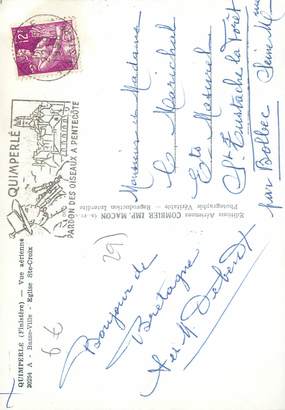 QUIMPERLÉ (Finistère) — Vue aérienne
20294 A - Basse-Ville - Eglise Ste-Croix
6 €
29
Bonjour de
Bretagne
QUIMPERLÉ
PARDON DES OISEAUX A PENTECÔTE
12F
Editions Aériennes COMBIER IMP. MACON
Photographie Véritable — Reproduction Interdite
Monsieur et Madame
Marichal
Ets Maurel
St Eustache la Forêt
par Bolbec Seine Mme